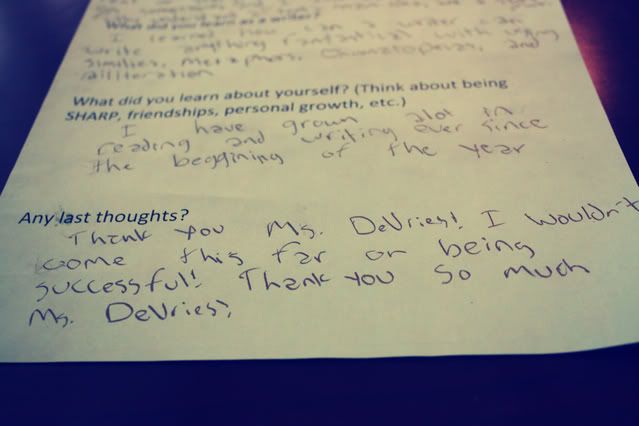 What did you learn as a writer?
I learned how can a writer can
write anything fantastical with using
similies, metaphors, Onomatopoeias, and
alliteration
What did you learn about yourself? (Think about being
SHARP, friendships, personal growth, etc.)
I have grown alot in
reading and writing ever since
the beggining of the year
Any last thoughts?
Thank you Ms. DeVries! I wouldn't
come this far or being
successful! Thank you so much
Ms. DeVries!